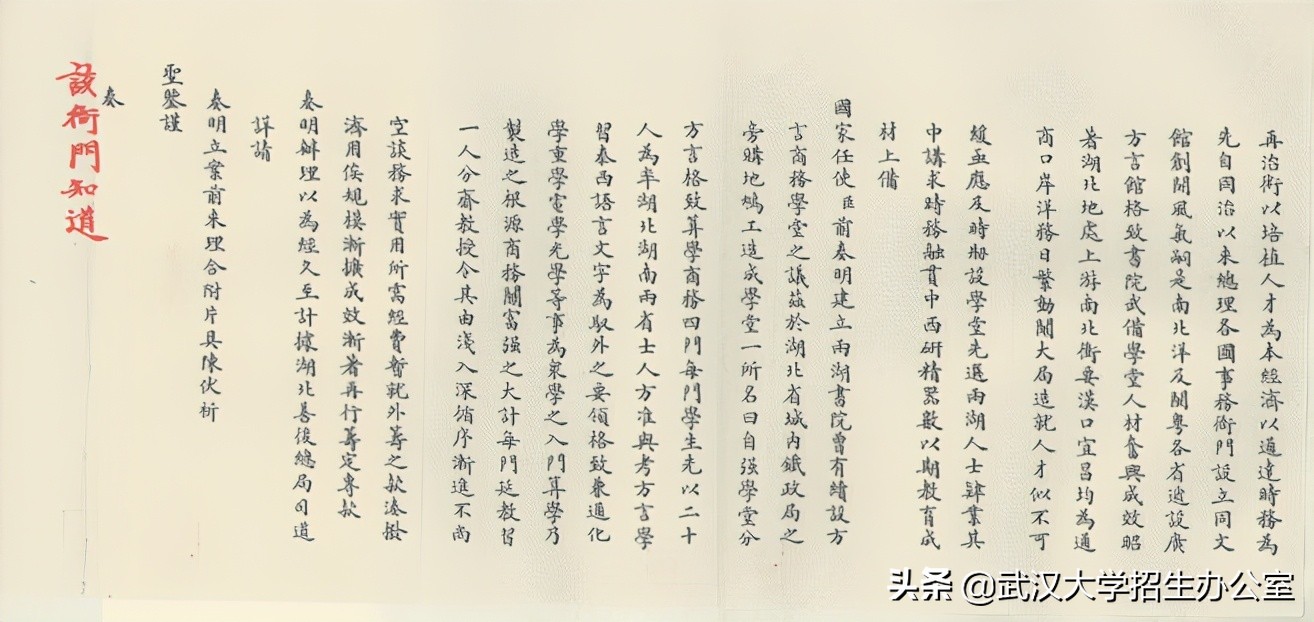 再治術以培植人才為本經濟以通達時務為
先自同治以來總理各國事務衙門設立同文
館創開風氣嗣是南北洋及閩粵各省遞設廣
方言館格致書院武備學堂人材奮興成效昭
著湖北地處上游南北衝要漢口宜昌均為通
商口岸洋務日繁動關大局造就人才似不可
緩亟應及時刱設學堂先選兩湖人士肄業其
中講求時務融貫中西研精器數以期教育成
材上備
國家任使臣前奏明建立兩湖書院曾有續設方
言商務學堂之議茲於湖北省城內鐵政局之
旁購地鳩工造成學堂一所名曰自強學堂分
方言格致算學商務四門每門學生先以二十
人為率湖北湖南兩省士人方准與考方言學
習泰西語言文字為馭外之要領格致兼通化
學重學電學光學等事為衆學之入門算學乃
製造之根源商務關富強之大計每門延教習
一人分齋教授令其由淺入深循序漸進不尚
空談務求實用所需經費暫就外籌之款湊撥
濟用俟規模漸擴成效漸著再行籌定專款
奏明辦理以為經久至計據湖北善後總局司道
詳請
奏明立案前來理合附片具陳伏祈
聖鑒謹
奏
該衙門知道
头条 @武汉大学招生办公室